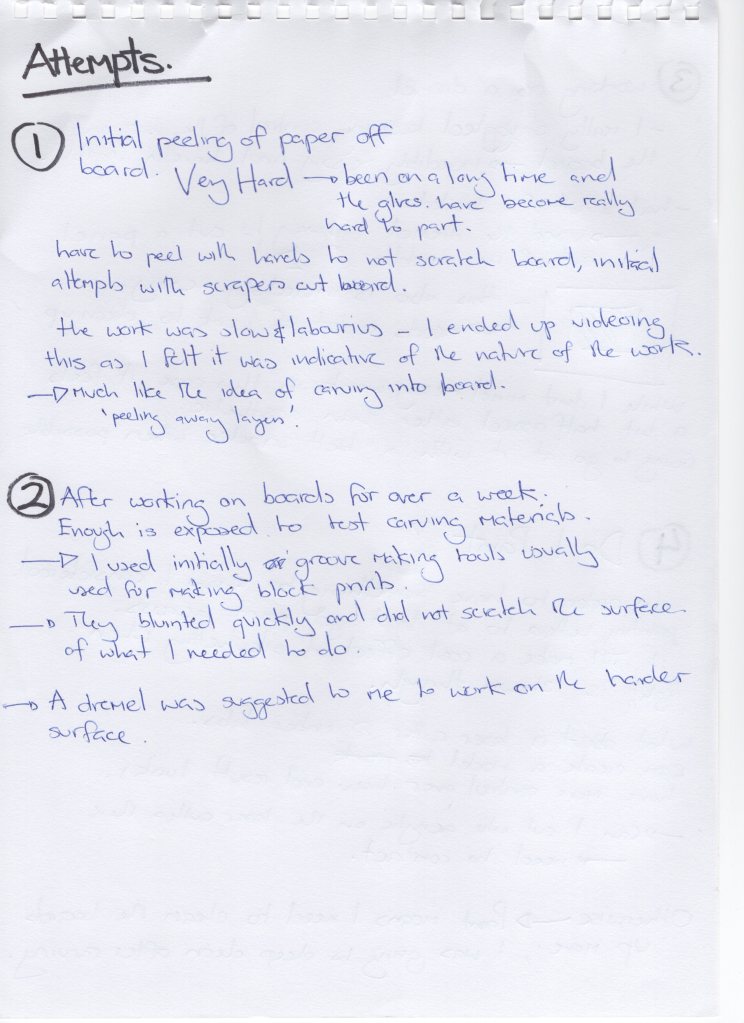 Attempts.
1 Initial peeling of paper off
board. Very Hard → been on a long time and
the glues have become really
hard to part.
have to peel with hands to not scratch board, initial
attempts with scrapers cut board.
the work was slow & labourius – I ended up videoing
this as I felt it was indicative of the nature of the work.
→ Much like the idea of carving into board.
'peeling away layers'.
2 After working on boards for over a week.
Enough is exposed to test carving materials.
→ I used initially groove making tools usually
used for making block prints.
→ They blunted quickly and did not scratch the surface
of what I needed to do.
→ A dremel was suggested to me to work on the harder
surface.